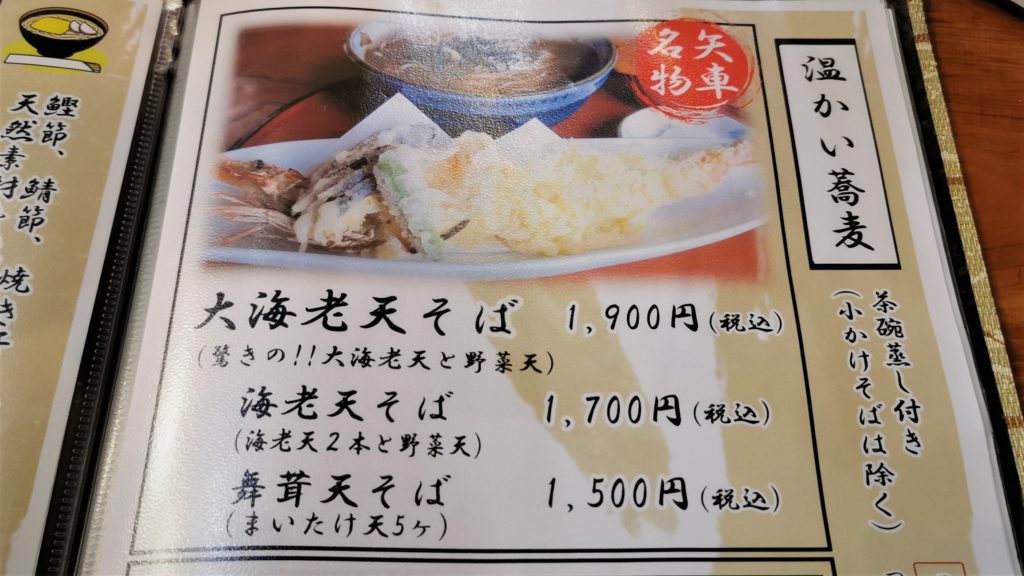 温かい蕎麦
茶碗蒸し付き
(小かけそばは除く)
矢車
名物
大海老天そば 1,900円(税込)
(驚きの!!大海老天と野菜天)
海老天そば 1,700円(税込)
(海老天2本と野菜天)
舞茸天そば 1,500円(税込)
(まいたけ天5ヶ)
鰹節、鯖節、焼き
天然素材